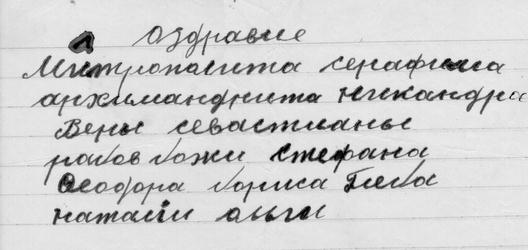 о здравие
Митрополита серафима
архимандрита никандра
Веры севастианы
рабов божи стефана
Феодора бориса Глеба
наташи ольги